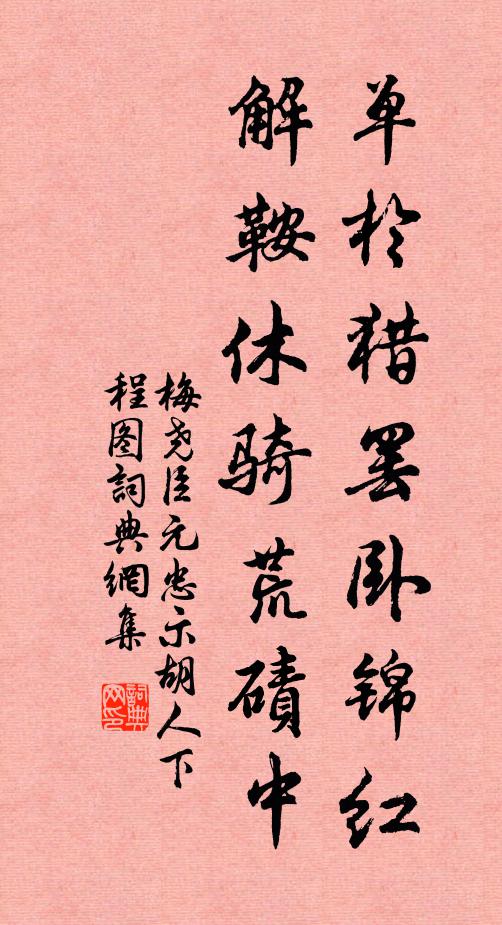 单於猎罢卧锦红
解鞍休骑荒碛中
梅尧臣元忠示胡人下
程图詞典網集
詞典网印